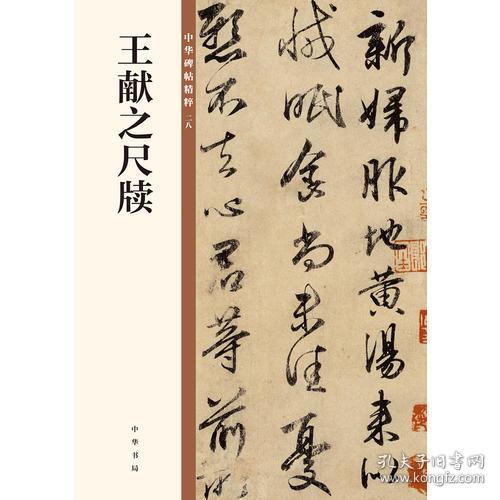 王献之尺牍
中华碑帖精粹 二八
中华书局
新婦服地黄湯来似
减眠食尚未佳憂
懸不去心君等前所
孔夫子旧书网